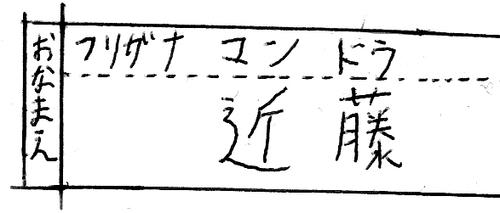 おなまえ
フリガナ コン ドラ
近 藤